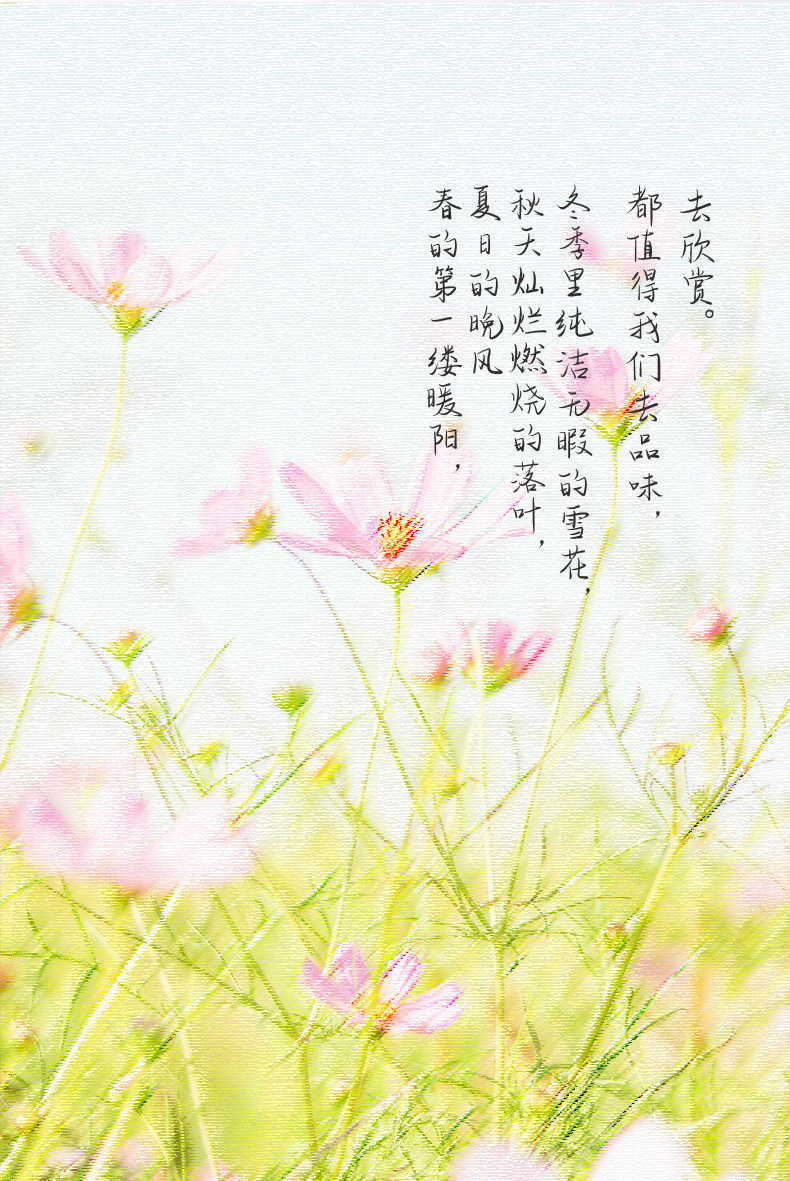 春的第一缕暖阳，
夏日的晚风
秋天灿烂燃烧的落叶，
冬季里纯洁无暇的雪花，
都值得我们去品味，
去欣赏。